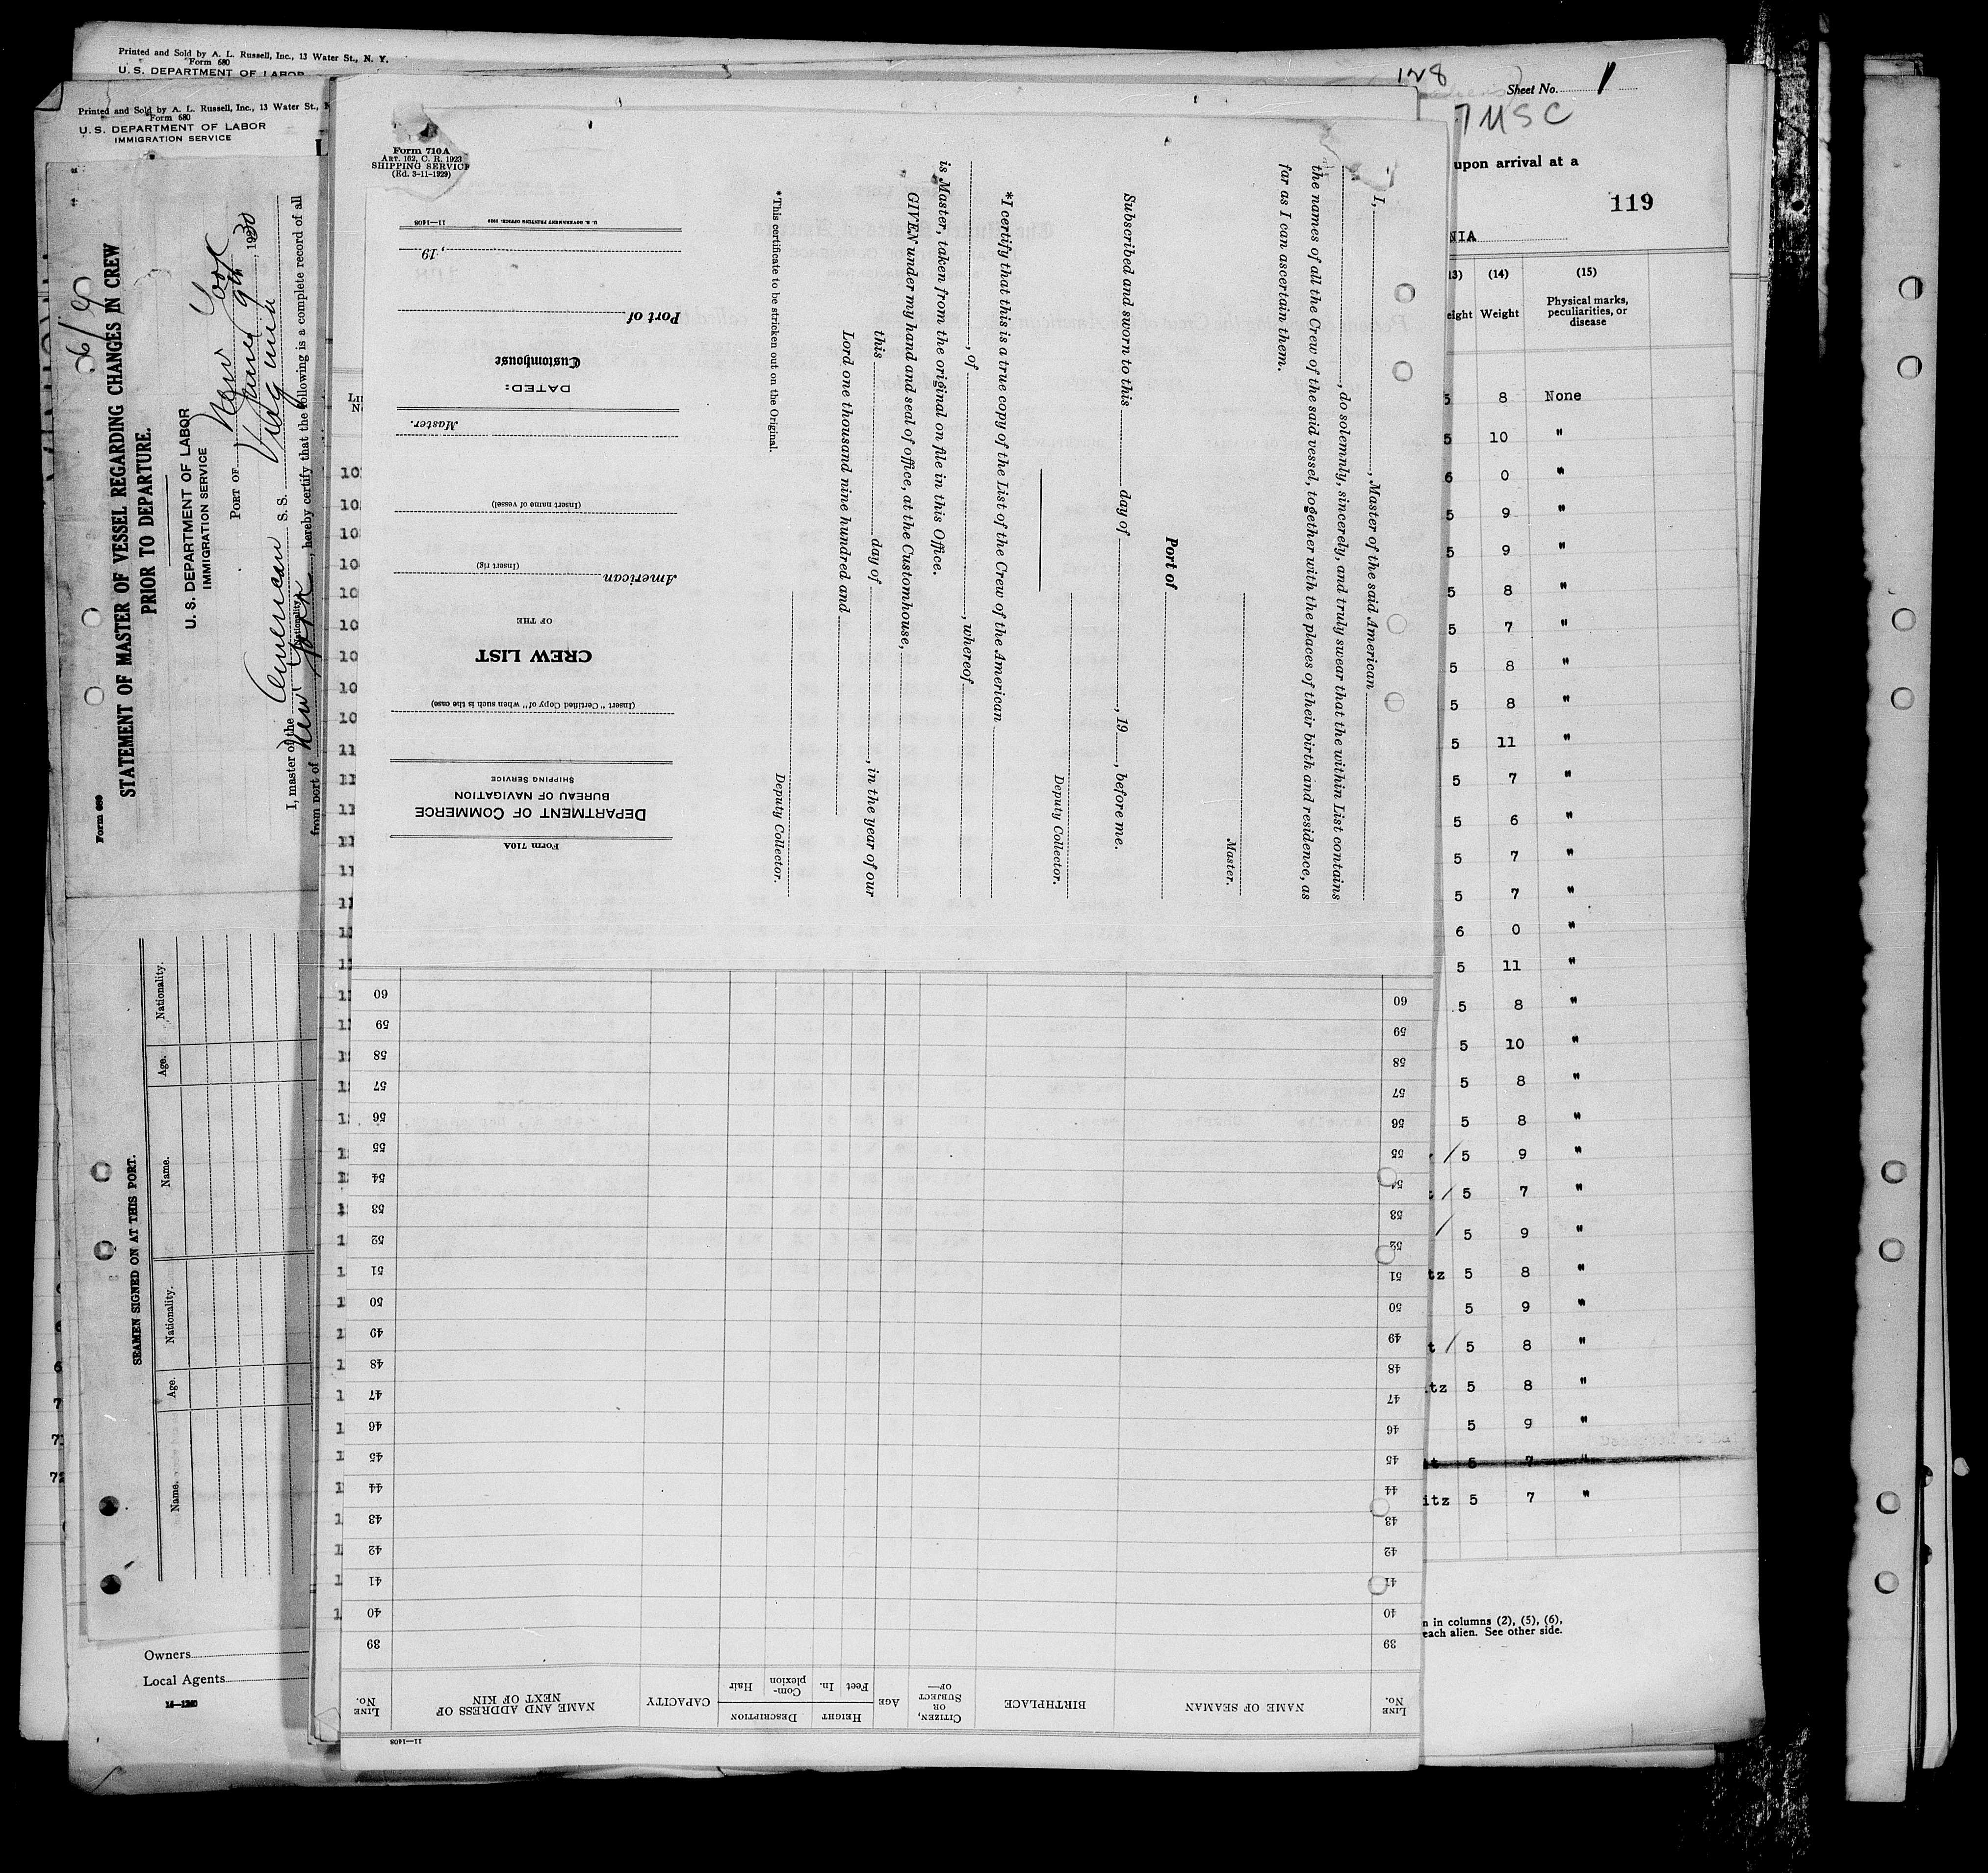 Printed and Sold by A. L. Russell, Inc., 13 Water St., N. Y.
Form 680
U. S. DEPARTMENT OF LABOR
Printed and Sold by A. L. Russell, Inc., 13 Water St.,
Form 680
U. S. DEPARTMENT OF LABOR
IMMIGRATION SERVICE
L
Form 689
STATEMENT OF MASTER OF VESSEL REGARDING CHANGES IN CREW
PRIOR TO DEPARTURE.
U. S. DEPARTMENT OF LABOR
IMMIGRATION SERVICE
PORT OF New York
June 9th, 1930
I, master of the American S. S. Virginia
(Nationality)
from port of New York, hereby certify that the following is a complete record of all
SEAMEN SIGNED ON AT THIS PORT.
Name. Age. Nationality. Name. Age. Nationality.
Owners
Local Agents
14—1240
Form 710A
ART. 162, C. R. 1923
SHIPPING SERVICE
(Ed. 3-11-1929)
I, , Master of the said American
, do solemnly, sincerely, and truly swear that the within List contains
the names of all the Crew of the said vessel, together with the places of their birth and residence, as
far as I can ascertain them.
Master.
Port of
Subscribed and sworn to this day of , 19 , before me.
Deputy Collector.
*I certify that this is a true copy of the List of the Crew of the American
, of , whereof
is Master, taken from the original on file in this Office.
GIVEN under my hand and seal of office, at the Customhouse,
this day of , in the year of our
Lord one thousand nine hundred and
Deputy Collector.
*This certificate to be stricken out on the Original.
Form 710A
DEPARTMENT OF COMMERCE
BUREAU OF NAVIGATION
SHIPPING SERVICE
(Insert "Certified Copy of" when such is the case)
CREW LIST
OF THE
American
(Insert rig)
(Insert name of vessel)
Master.
DATED:
Customhouse
Port of
, 19
U. S. GOVERNMENT PRINTING OFFICE: 1929 11—1408
11—1408
LINE No. NAME OF SEAMAN BIRTHPLACE CITIZEN, OR SUBJECT OF— AGE HEIGHT Feet In. DESCRIPTION Complexion Hair CAPACITY NAME AND ADDRESS OF NEXT OF KIN LINE No.
39 39
40 40
41 41
42 42
43 43
44 44
45 45
46 46
47 47
48 48
49 49
50 50
51 51
52 52
53 53
54 54
55 55
56 56
57 57
58 58
59 59
60 60
128
Sheet No. 1
upon arrival at a
119
NIA
(13) (14) (15)
eight Weight Physical marks, peculiarities, or disease
5 8 None
5 10 "
6 0 "
5 9 "
5 9 "
5 8 "
5 7 "
5 8 "
5 8 "
5 11 "
5 7 "
5 6 "
5 7 "
5 7 "
6 0 "
5 11 "
5 8 "
5 10 "
5 8 "
5 8 "
/ 5 9 "
/ 5 7 "
/ 5 9 "
tz 5 8 "
5 9 "
t / 5 8 "
tz 5 8 "
5 9 "
5 7 "
itz 5 7 "
n in columns (2), (5), (6),
each alien. See other side.